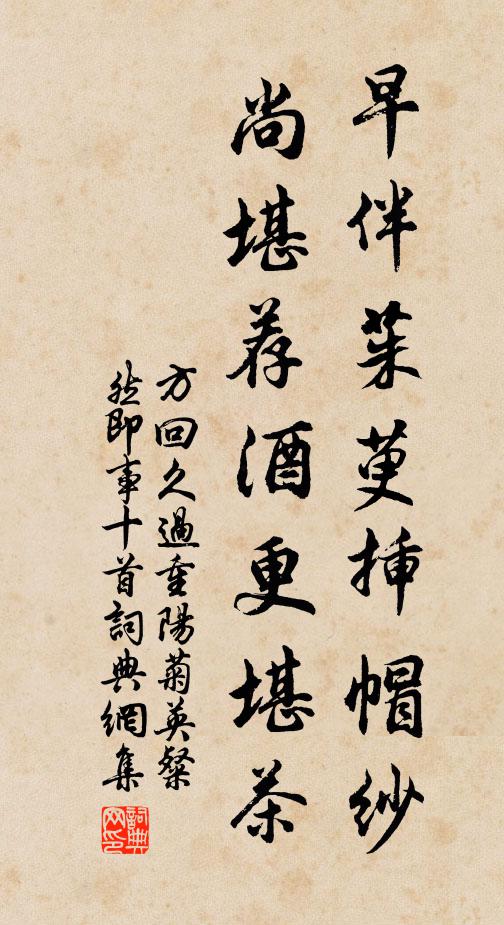 早伴茱萸挿帽紗
尚堪荐酒更堪茶
方回久過重陽菊英粲
然即事十首詞典網集
詞典网印